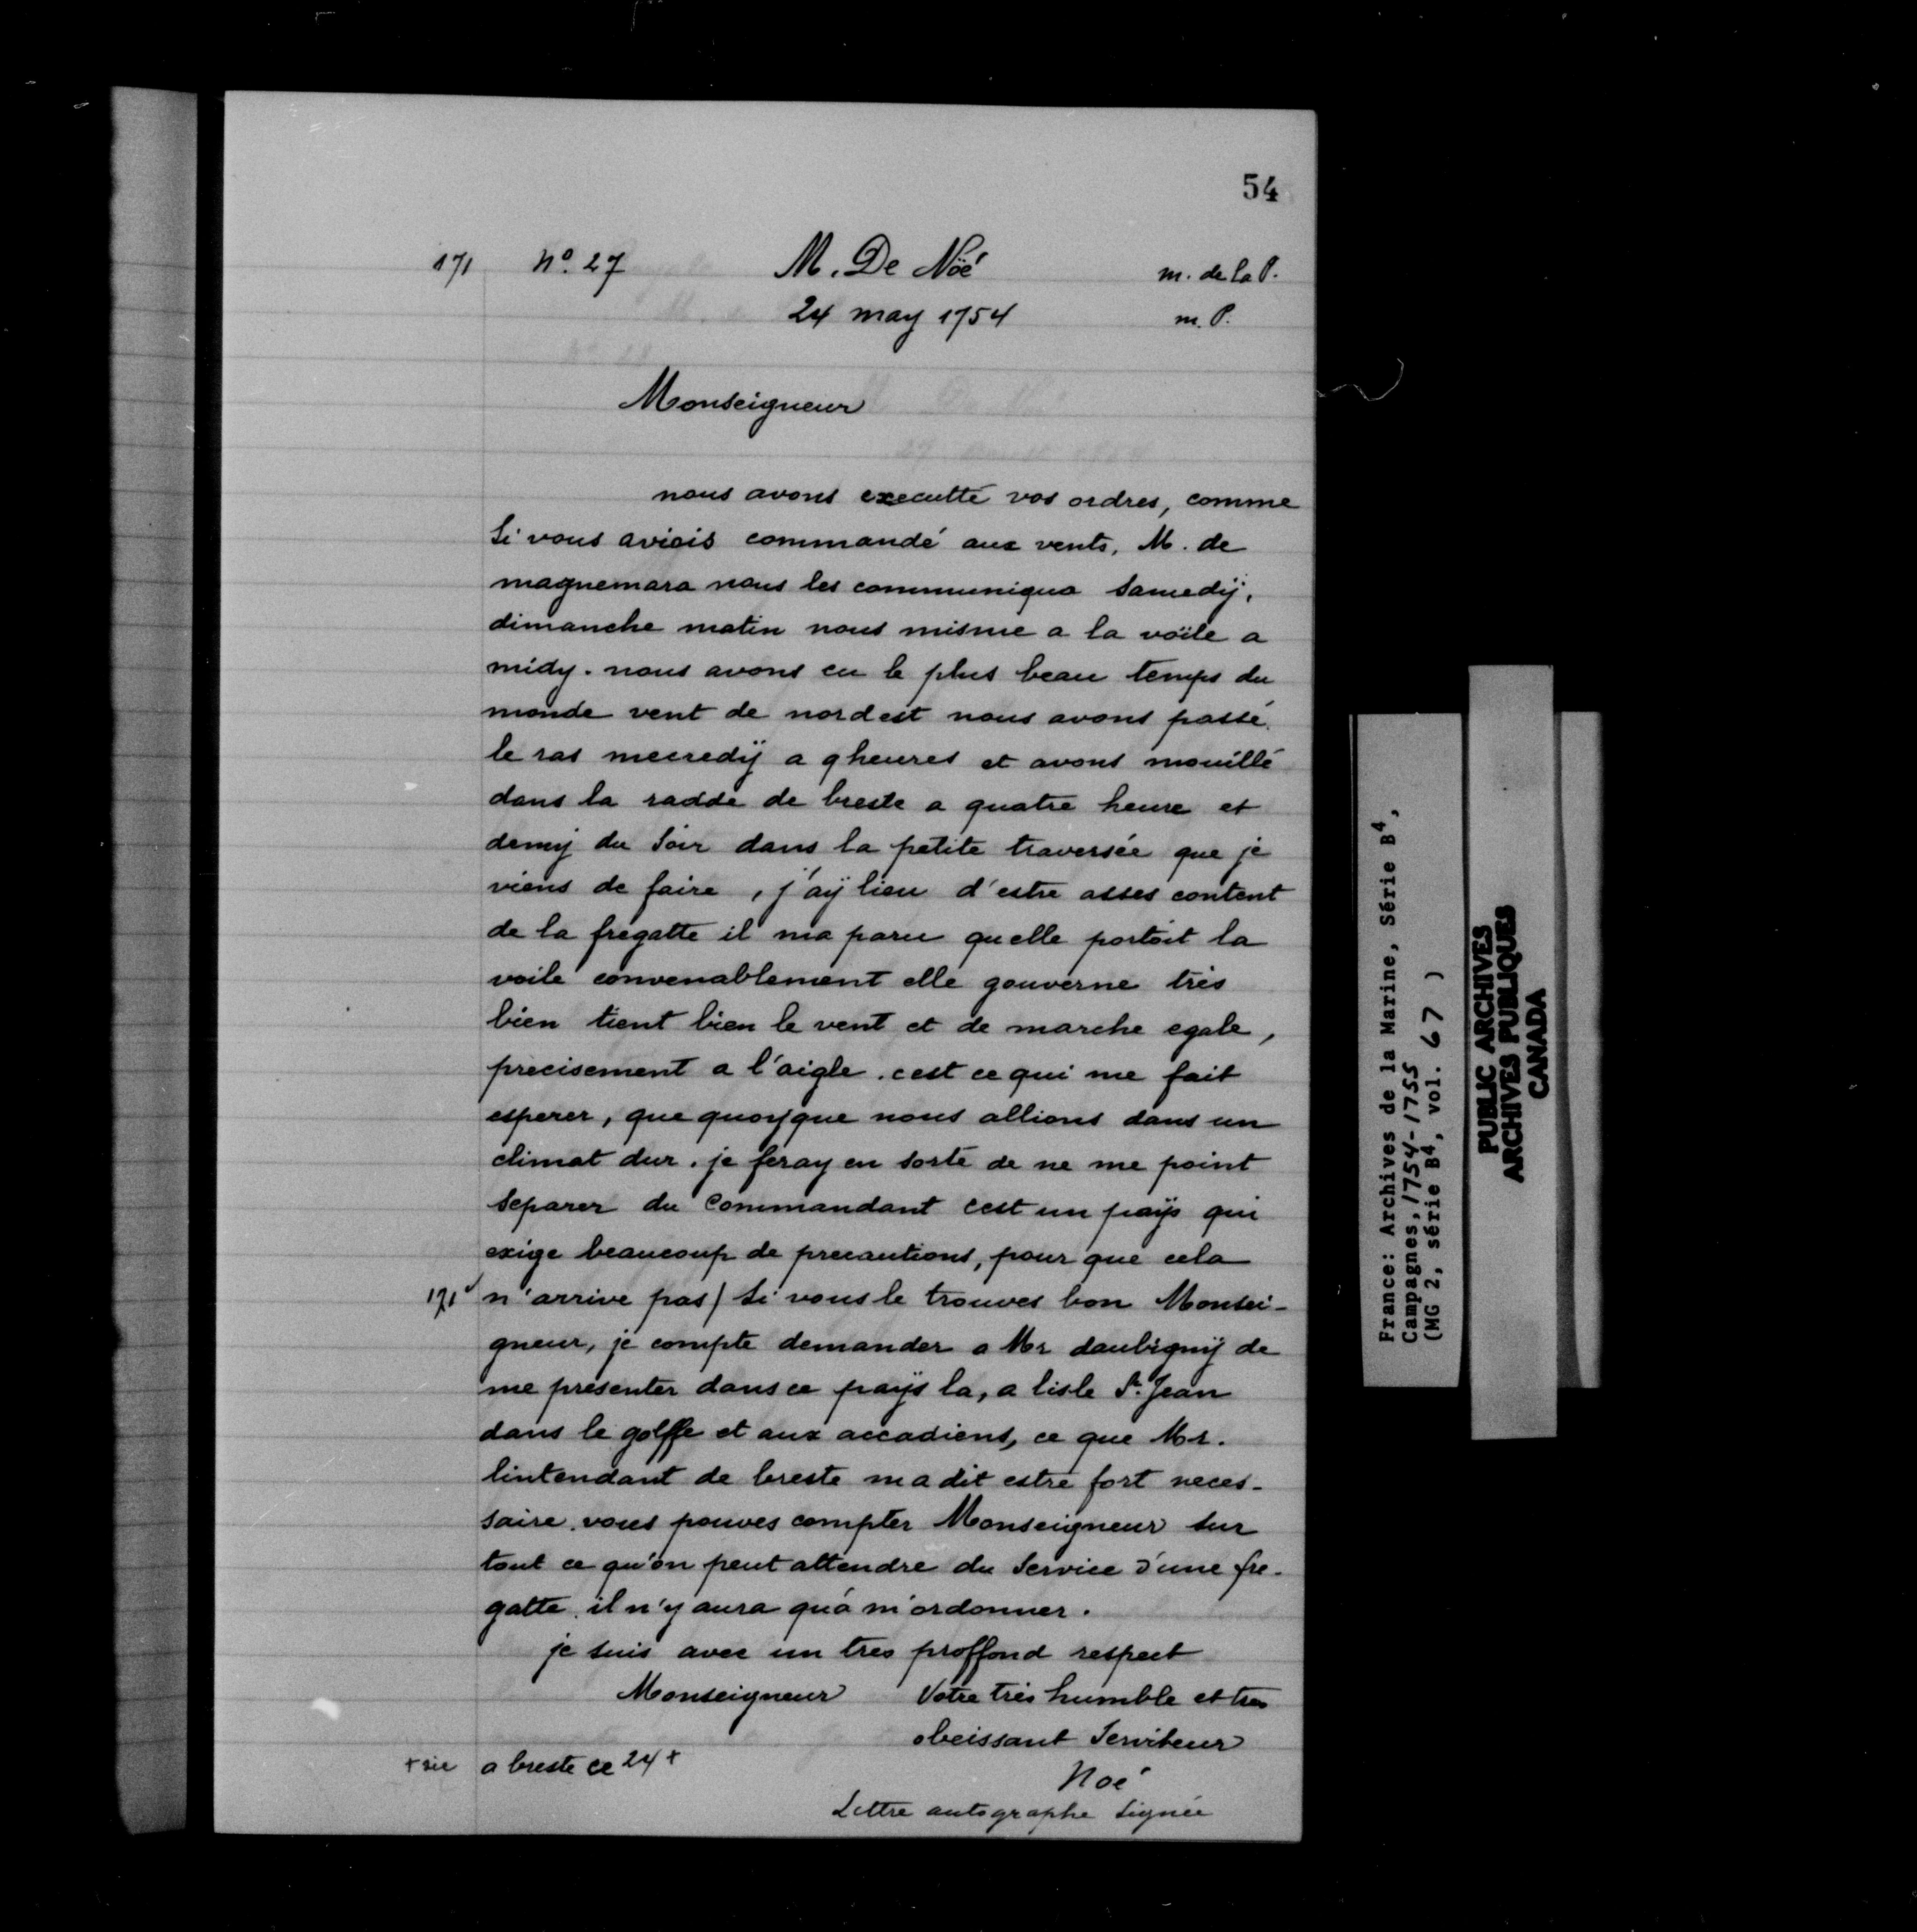 54
171 No. 27 M. De Nöé m. de la P.
24 may 1754 m. P.
Monseigneur
nous avons executté vos ordres, comme
si vous aviois commandé aux vents, M. de
maqnemara nous les communiqua Samedÿ,
dimanche matin nous misme a la voile a
midy. nous avons eu le plus beau temps du
monde vent de nordest nous avons passé
le ras mecredÿ a 9 heures et avons mouillé
dans la radde de breste a quatre heure et
demy du Soir dans la petite traversée que je
viens de faire, j'aÿ lieu d'estre asses content
de la fregatte il ma paru quelle portoit la
voile convenablement elle gouverne très
bien tient bien le vent et de marche egale,
precisement a l'aigle. cest ce qui me fait
esperer, que quoyque nous allions dans un
climat dur. je feray en sorte de ne me point
separer du Commandant cest un païs qui
exige beaucoup de precautions, pour que cela
171v n'arrive pas/ Si vous le trouves bon Monsei-
gneur, je compte demander a Mr daubignÿ de
me presenter dans ce païs la, a lisle St. Jean
dans le golffe et aux accadiens, ce que Mr.
lintendant de breste ma dit estre fort neces-
saire. vous pouves compter Monseigneur sur
tout ce qu'on peut attendre du Service d'une fre-
gatte. il n'y aura qu'a m'ordonner.
je suis avec un tres proffond respect
Monseigneur Votre très humble et tres
obeissant Serviteur
+ sic a breste ce 24 +
Noé
Lettre autographe signée
France: Archives de la Marine, Série B4,
Campagnes, 1754-1755
(MG 2, série B4, vol. 67 )
PUBLIC ARCHIVES
ARCHIVES PUBLIQUES
CANADA